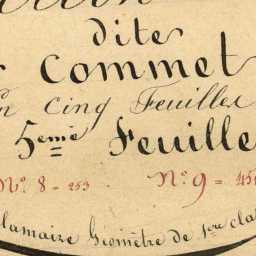 dite
Commet
En cinq Feuilles
5eme Feuille
No. 8 = 253 No. 9 = 45
lamaire Géomètre de 1ere cla